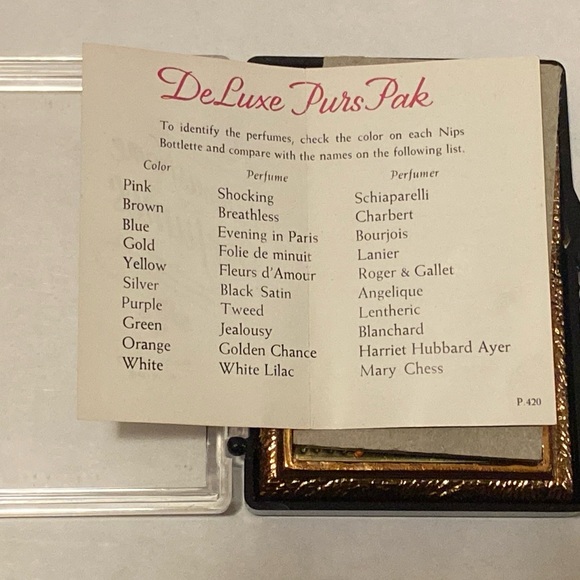 DeLuxe Purs Pak
To identify the perfumes, check the color on each Nips
Bottlette and compare with the names on the following list.
Color Perfume Perfumer
Pink Shocking Schiaparelli
Brown Breathless Charbert
Blue Evening in Paris Bourjois
Gold Folie de minuit Lanier
Yellow Fleurs d'Amour Roger & Gallet
Silver Black Satin Angelique
Purple Tweed Lentheric
Green Jealousy Blanchard
Orange Golden Chance Harriet Hubbard Ayer
White White Lilac Mary Chess
P.420